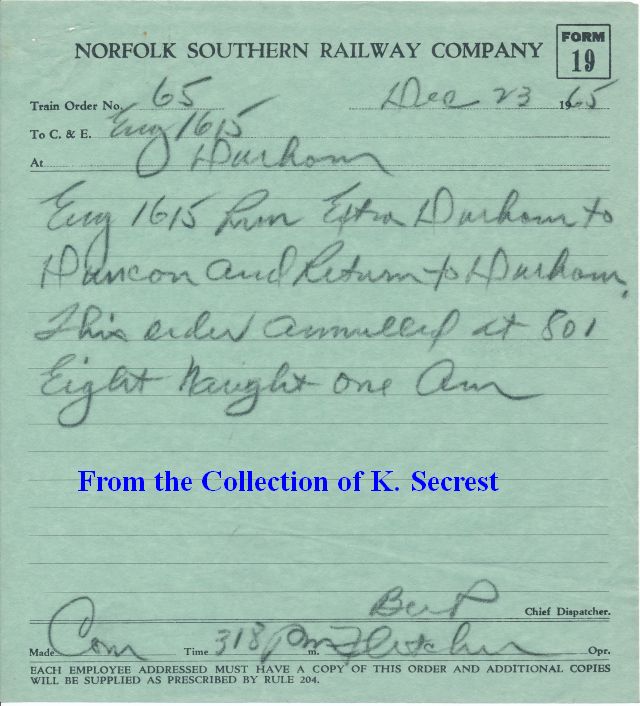 NORFOLK SOUTHERN RAILWAY COMPANY
FORM 19
Train Order No. 65 Dec 23 1965
To C. & E. Eng 1615
At Durham
Eng 1615 Run Extra Durham to
Duncan and Return to Durham.
This order annulled at 801
Eight Naught one Am
From the Collection of K. Secrest
Chief Dispatcher.
Made Com Time 318 Pm m. Fletcher Opr.
EACH EMPLOYEE ADDRESSED MUST HAVE A COPY OF THIS ORDER AND ADDITIONAL COPIES
WILL BE SUPPLIED AS PRESCRIBED BY RULE 204.